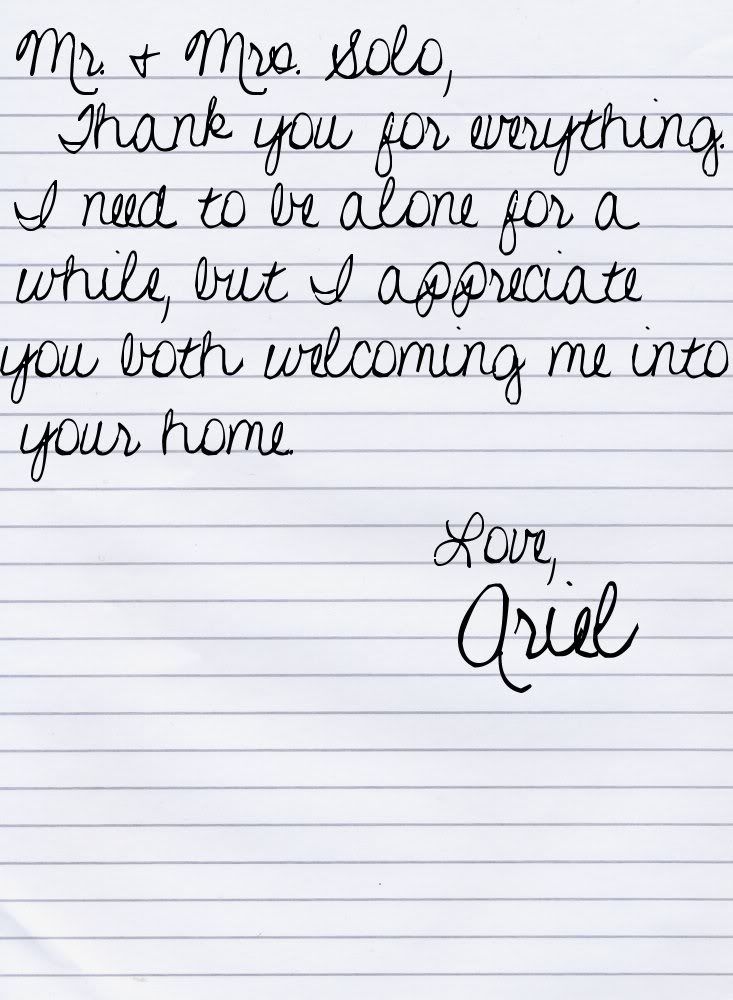 Mr. + Mrs. Solo,
Thank you for everything.
I need to be alone for a
while, but I appreciate
you both welcoming me into
your home.
Love,
Ariel